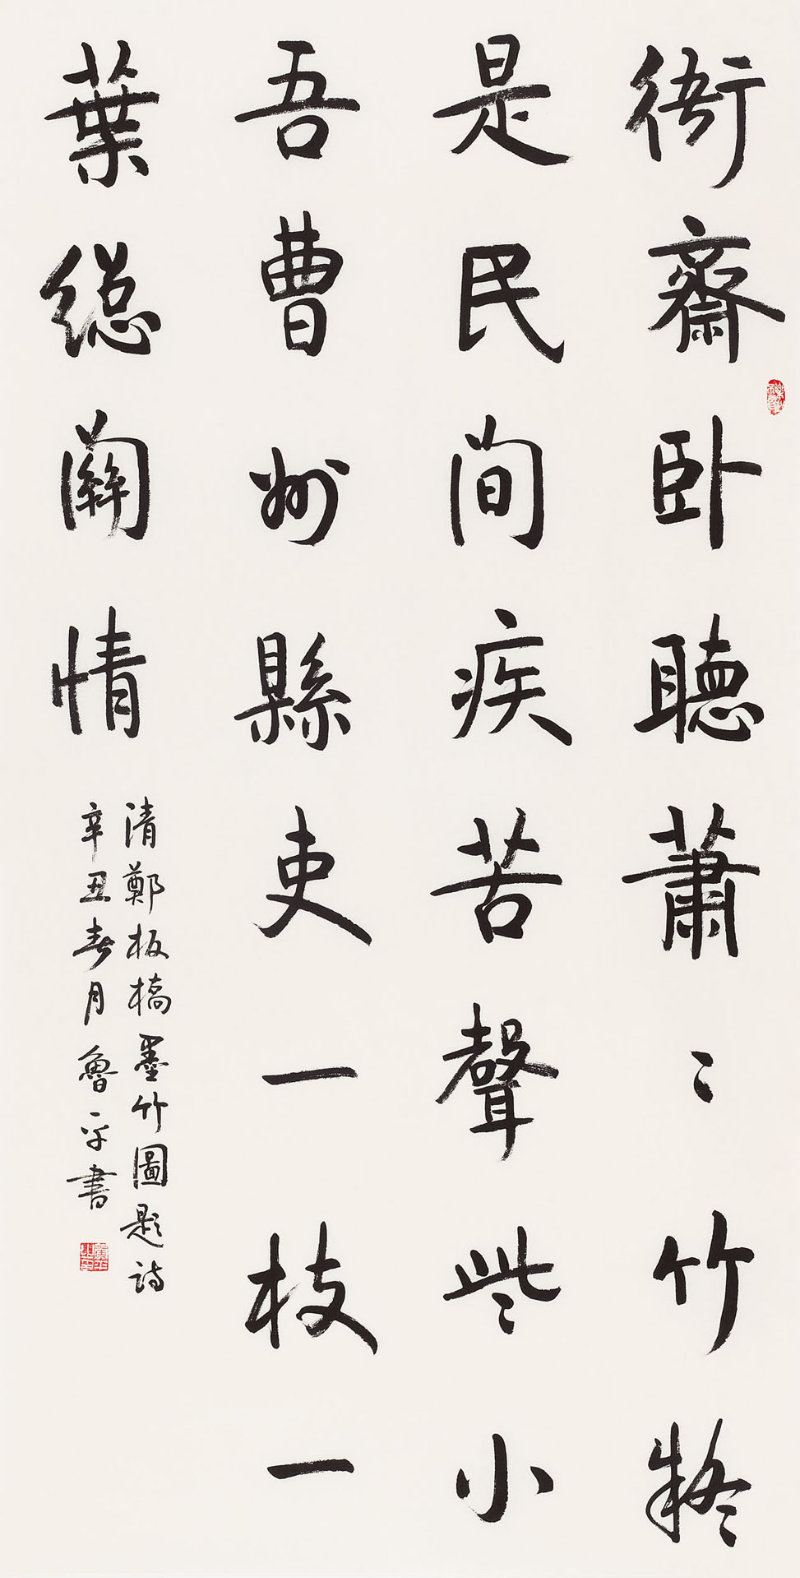 衙齋卧聽蕭〻竹疑
是民間疾苦聲些小
吾曹州縣吏一枝一
葉總關情
清鄭板橋墨竹圖題詩
辛丑春月魯平書